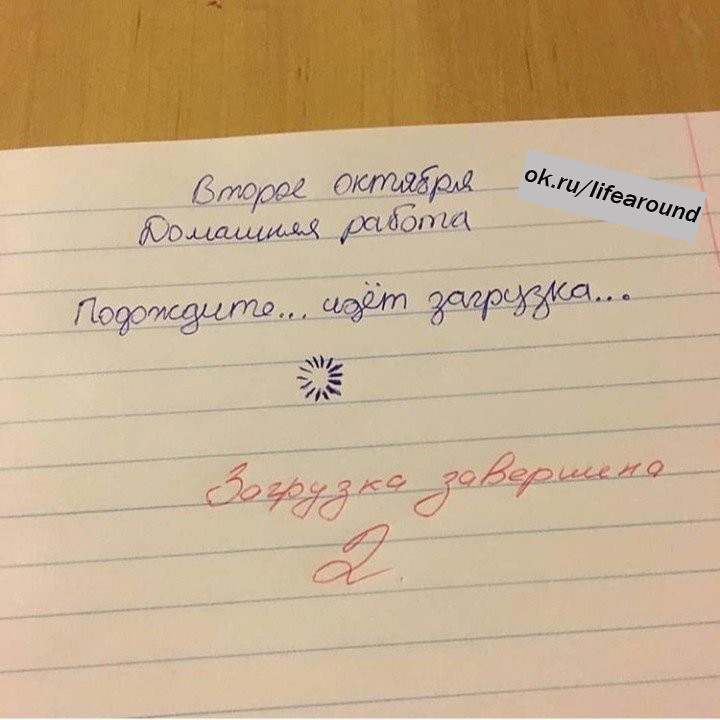 Второе октября
ok.ru/lifearound
Домашняя работа
Подождите... идёт загрузка...
Загрузка завершена
2